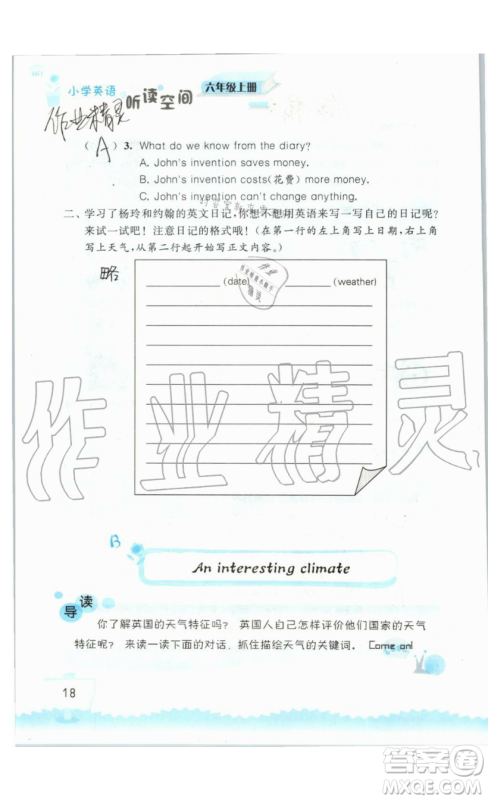 小学英语 听读空间 六年级上册
作业精灵
( A ) 3. What do we know from the diary?
A. John's invention saves money.
B. John's invention costs(花费) more money.
C. John's invention can't change anything.
二、学习了杨玲和约翰的英文日记,你想不想用英语来写一写自己的日记呢?
来试一试吧!注意日记的格式哦!(在第一行的左上角写上日期,右上角
写上天气,从第二行起开始写正文内容。)
略
(date) (weather)
作业精灵
B
An interesting climate
导读
你了解英国的天气特征吗? 英国人自己怎样评价他们国家的天气
特征呢? 来读一读下面的对话,抓住描绘天气的关键词。 Come on!
18
答案圈
MXQE.COM